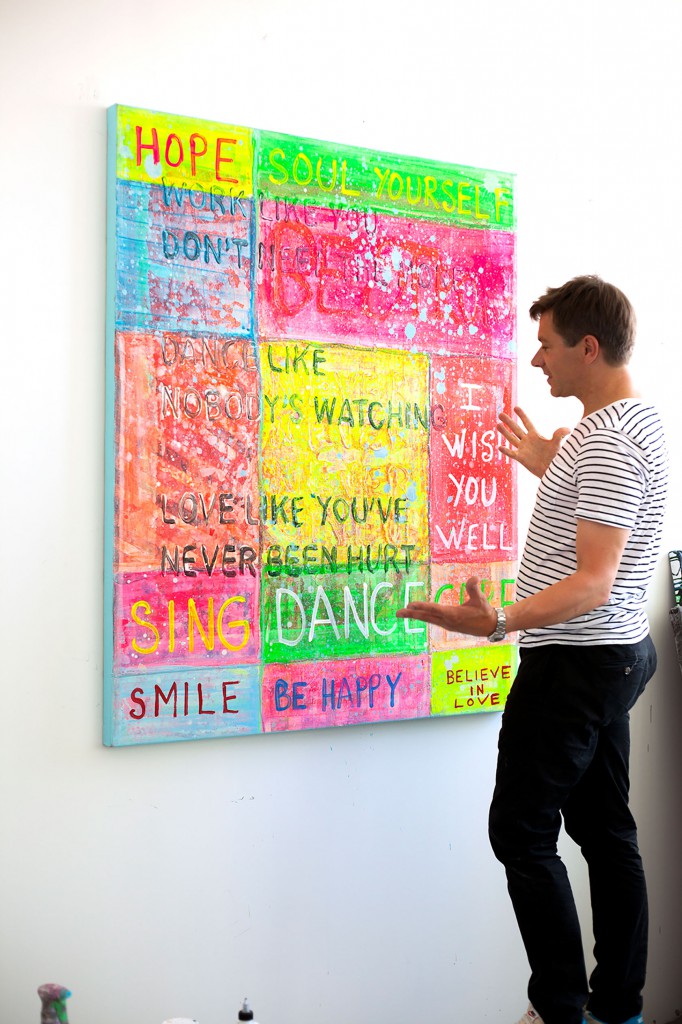 HOPE
SOUL YOURSELF
WORK LIKE YOU
DON'T NEED THE MONEY
BEST
DANCE LIKE
NOBODY'S WATCHING
I
WISH
YOU
WELL
LOVE LIKE YOU'VE
NEVER BEEN HURT
SING
DANCE
SMILE
BE HAPPY
BELIEVE
IN
LOVE